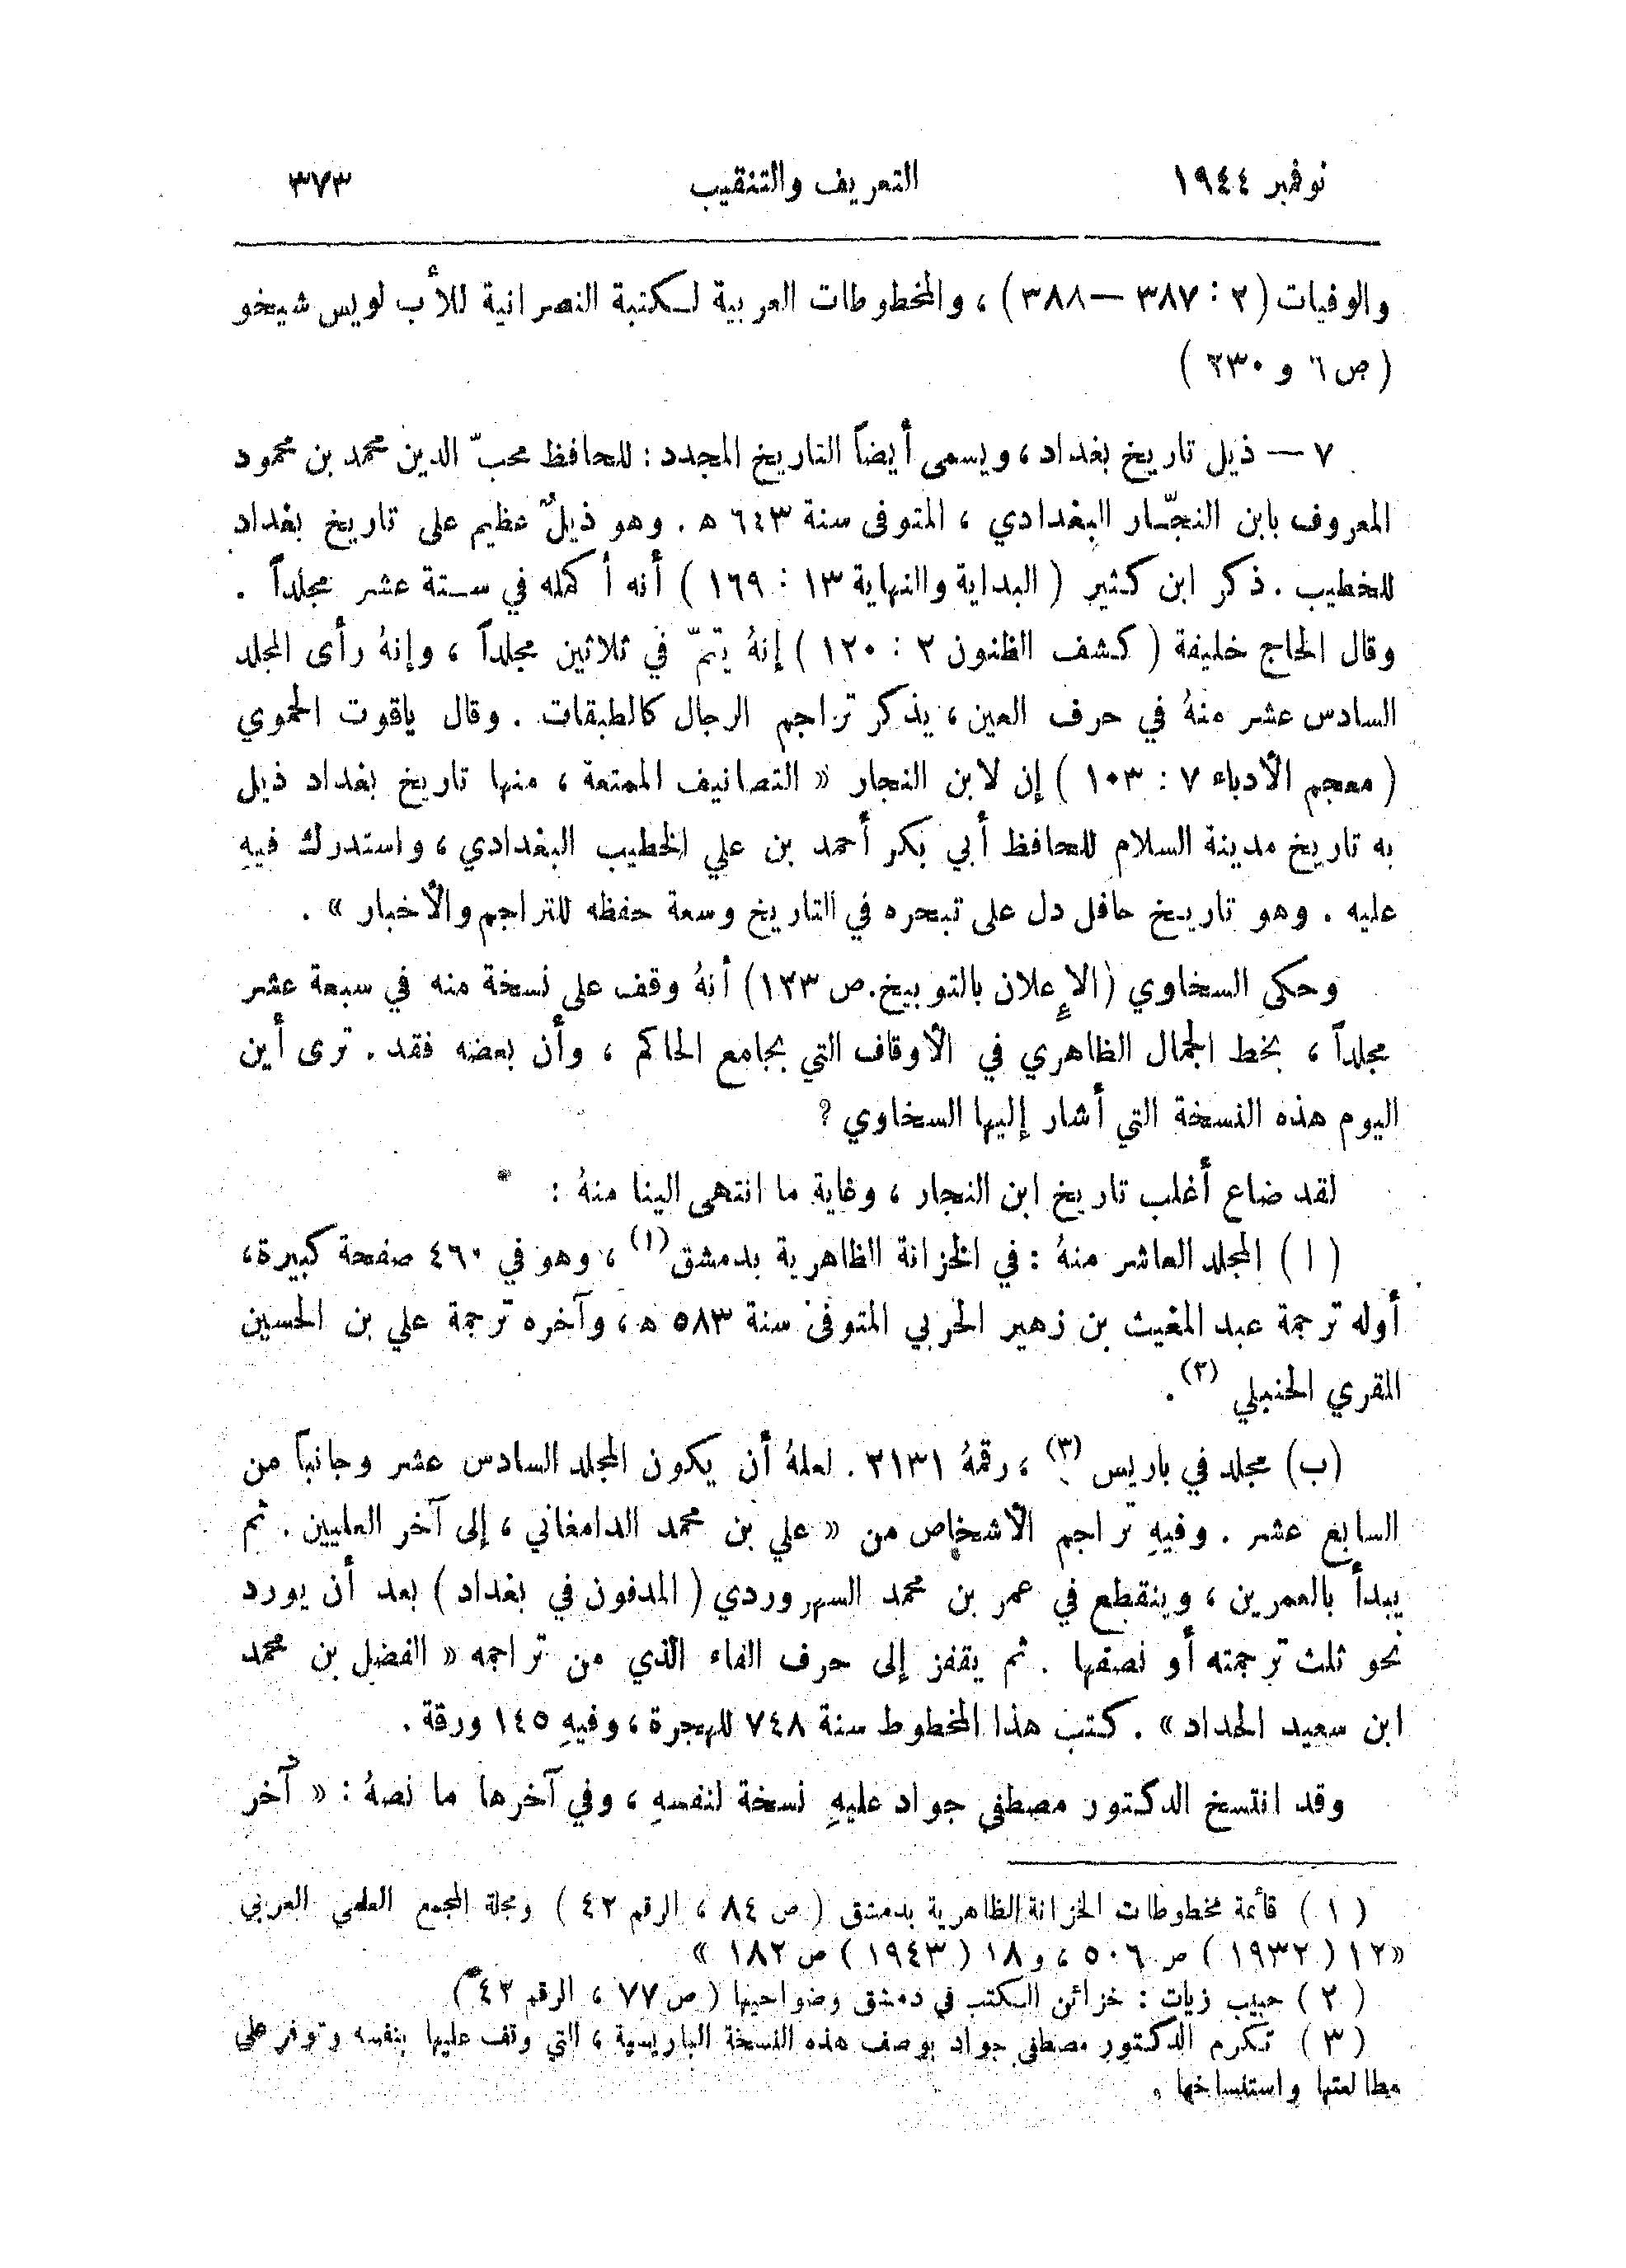 نوفمبر ١٩٤٤
التعريف والتنقيب
٣٧٣
والوفيات (٢ : ٣٨٧ — ٣٨٨) ، والمخطوطات العربية لكتبة النصرانية للأب لويس شيخو
( ص ٦ و ٢٣٠ )
٧ — ذيل تاريخ بغداد ، ويسمى أيضاً التاريخ المجدد : للحافظ محبّ الدين محمد بن محمود
المعروف بابن النجّار البغدادي ، المتوفى سنة ٦٤٣ ه . وهو ذيلٌ عظيم على تاريخ بغداد
للخطيب . ذكر ابن كثير ( البداية والنهاية ١٣ : ١٦٩ ) أنه أكمله في ستة عشر مجلداً .
وقال الحاج خليفة ( كشف الظنون ٢ : ١٢٠ ) إنهُ يتمّ في ثلاثين مجلداً ، وإنهُ رأى المجلد
السادس عشر منهُ في حرف العين ، يذكر تراجم الرجال كالطبقات . وقال ياقوت الحموي
( معجم الأدباء ٧ : ١٠٣ ) إن لابن النجار « التصانيف الممتعة ، منها تاريخ بغداد ذيل
به تاريخ مدينة السلام للحافظ أبي بكر أحمد بن علي الخطيب البغدادي ، واستدرك فيهِ
عليه . وهو تاريخ حافل دل على تبحره في التاريخ وسعة حفظه للتراجم والأخبار » .
وحكى السخاوي (الإعلان بالتوبيخ . ص ١٢٣) أنهُ وقف على نسخة منه في سبعة عشر
مجلداً ، بخط الجمال الظاهري في الأوقاف التي بجامع الحاكم ، وأن بعضه فقد . ترى أين
اليوم هذه النسخة التي أشار إليها السخاوي ؟
لقد ضاع أغلب تاريخ ابن النجار ، وغاية ما انتهى الينا منهُ :
( ا ) المجلد العاشر منهُ : في الخزانة الظاهرية بدمشق (١) ، وهو في ٤٦٠ صفحة كبيرة ،
أوله ترجمة عبد المغيث بن زهير الحربي المتوفى سنة ٥٨٣ ه ، وآخره ترجمة علي بن الحسين
المقري الحنبلي (٢) .
(ب) مجلد في باريس (٣) ، رقمهُ ٢١٣١ . لعلهُ أن يكون المجلد السادس عشر وجانباً من
السابع عشر . وفيهِ تراجم الأشخاص من « علي بن محمد الدامغاني ، إلى آخر العليين . ثم
يبدأ بالعمرين ، وينقطع في عمر بن محمد السهروردي ( المدفون في بغداد ) بعد أن يورد
نحو ثلث ترجمته أو نصفها . ثم يقفز إلى حرف الفاء الذي من تراجمه « الفضل بن محمد
ابن سعيد الحداد » . كتب هذا المخطوط سنة ٧٤٨ للهجرة ، وفيهِ ١٤٥ ورقة .
وقد انتسخ الدكتور مصطفى جواد عليهِ نسخة لنفسهِ ، وفي آخرها ما نصهُ : « آخر
( ١ ) قائمة مخطوطات الخزانة الظاهرية بدمشق ( ص ٨٤ ، الرقم ٤٢ ) ومجلة المجمع العلمي العربي
« ١٢ ( ١٩٣٢ ) ص ٥٠٦ ، و ١٨ ( ١٩٤٣ ) ص ١٨٢ »
( ٢ ) حبيب زيات : خزائن الكتب في دمشق وضواحيها ( ص ٧٧ ، الرقم ٤٢ )
( ٣ ) تكرم الدكتور مصطفى جواد بوصف هذه النسخة الباريسية ، التي وقف عليها بنفسه وتوفر على
مطالعتها واستنساخها .